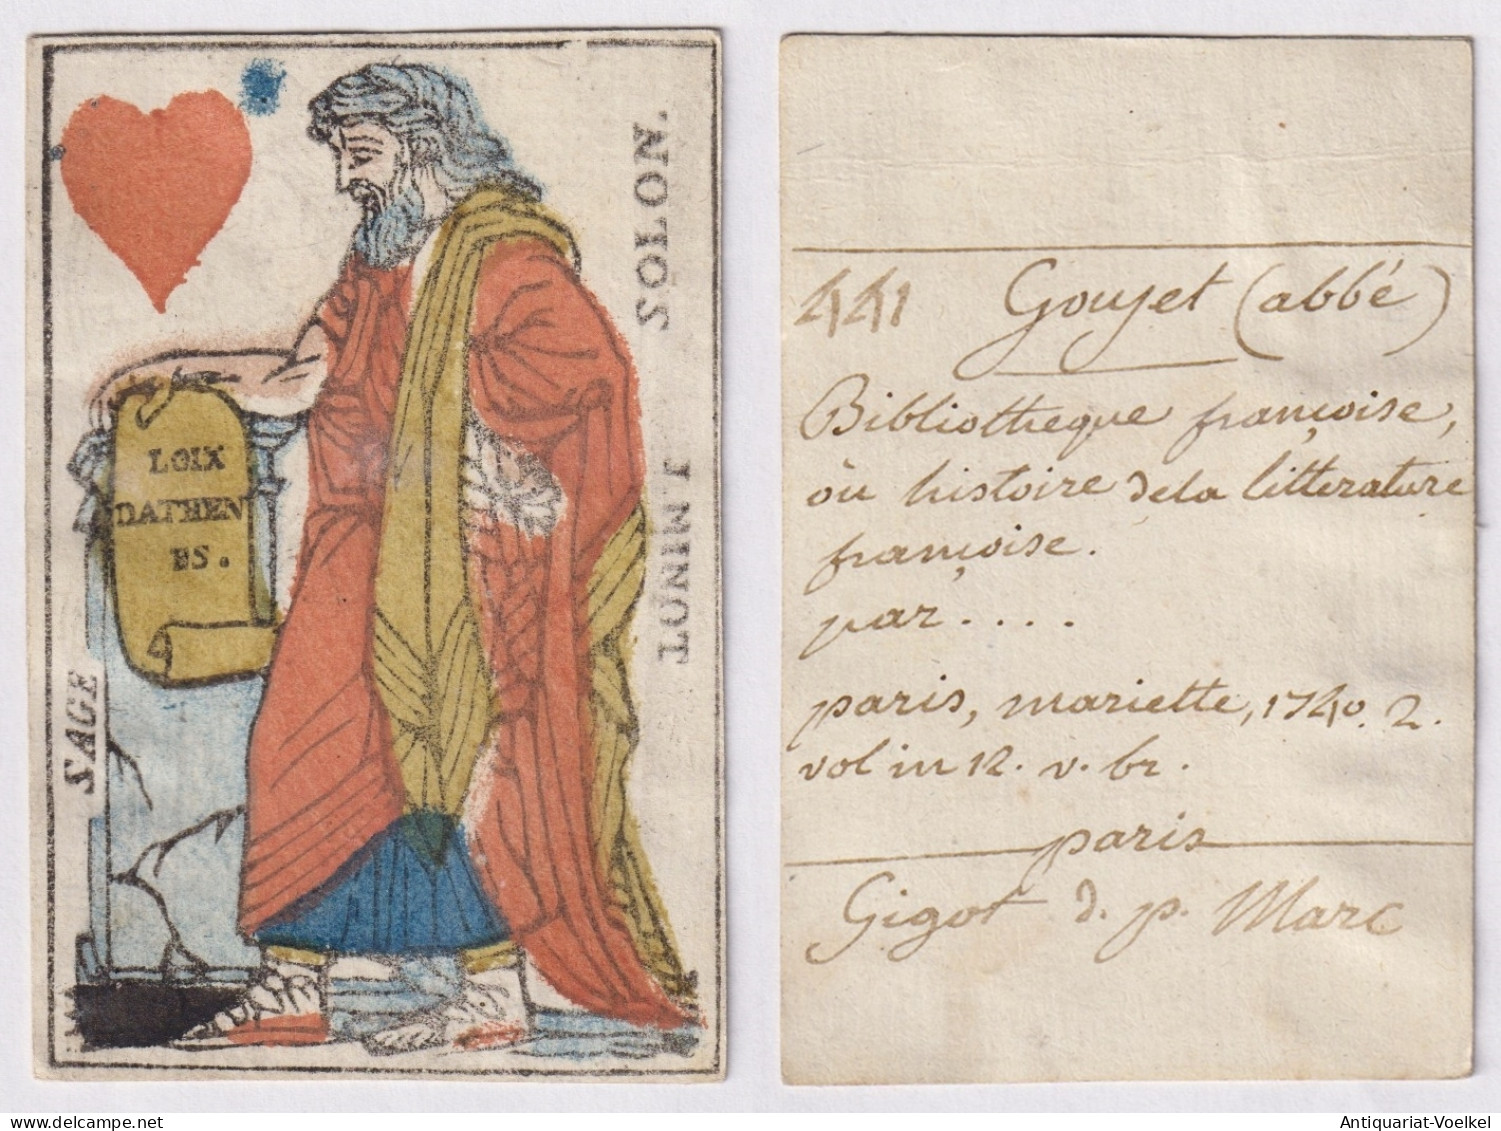 SOLON.
J. MINOT
LOIX
DATHEN
ES.
SAGE
441 Goujet (abbé)
Bibliotheque françoise,
ou histoire de la litterature
françoise.
par....
paris, mariette, 1740. 2.
vol in 12. v. br.
paris
Gigot d. p. Marc
delcampe.net
Antiquariat-Voelkel